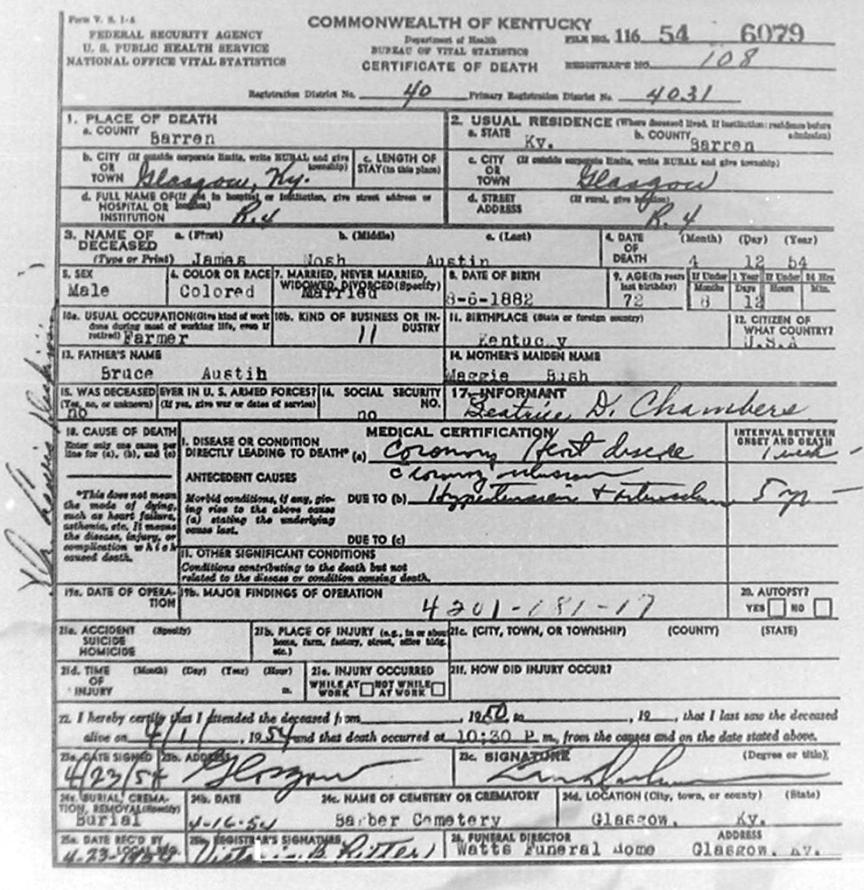 Form V. S. 1-A
COMMONWEALTH OF KENTUCKY
FEDERAL SECURITY AGENCY
U. S. PUBLIC HEALTH SERVICE
NATIONAL OFFICE VITAL STATISTICS
Department of Health
BUREAU OF VITAL STATISTICS
CERTIFICATE OF DEATH
FILE NO. 116 54 6079
REGISTRAR'S NO. 108
Registration District No. 40 Primary Registration District No. 4031
1. PLACE OF DEATH
a. COUNTY Barren
2. USUAL RESIDENCE (Where deceased lived. If institution: residence before admission)
a. STATE Ky. b. COUNTY Barren
b. CITY (If outside corporate limits, write RURAL and give township)
OR TOWN Glasgow, Ky.
c. LENGTH OF STAY (in this place)
c. CITY (If outside corporate limits, write RURAL and give township)
OR TOWN Glasgow
d. FULL NAME OF (If not in hospital or institution, give street address or location)
HOSPITAL OR INSTITUTION R.4
d. STREET ADDRESS (If rural, give location) R. 4
3. NAME OF DECEASED (Type or Print)
a. (First) b. (Middle) c. (Last)
James Nosh Austin
4. DATE OF DEATH (Month) (Day) (Year)
4 12 54
5. SEX Male
6. COLOR OR RACE Colored
7. MARRIED, NEVER MARRIED, WIDOWED, DIVORCED (Specify) Married
8. DATE OF BIRTH 8-6-1882
9. AGE (In years last birthday) 72
If Under 1 Year Months 8 Days 12
If Under 24 Hrs Hours Min.
10a. USUAL OCCUPATION (Give kind of work done during most of working life, even if retired) Farmer
10b. KIND OF BUSINESS OR INDUSTRY 11
11. BIRTHPLACE (State or foreign country) Kentucky
12. CITIZEN OF WHAT COUNTRY? U.S.A
13. FATHER'S NAME
Bruce Austin
14. MOTHER'S MAIDEN NAME
Maggie Bush
15. WAS DECEASED EVER IN U. S. ARMED FORCES?
(Yes, no, or unknown) (If yes, give war or dates of service)
no
16. SOCIAL SECURITY NO.
no
17. INFORMANT
Beatrice D. Chambers
18. CAUSE OF DEATH
Enter only one cause per line for (a), (b), and (c)
*This does not mean the mode of dying, such as heart failure, asthenia, etc. It means the disease, injury, or complication which caused death.
MEDICAL CERTIFICATION
INTERVAL BETWEEN ONSET AND DEATH
I. DISEASE OR CONDITION DIRECTLY LEADING TO DEATH* (a) Coronary Heart disease 1 week
ANTECEDENT CAUSES
Morbid conditions, if any, giving rise to the above cause (a) stating the underlying cause last.
DUE TO (b) Hypertension + 5 yr
DUE TO (c)
II. OTHER SIGNIFICANT CONDITIONS
Conditions contributing to the death but not related to the disease or condition causing death.
19a. DATE OF OPERATION
19b. MAJOR FINDINGS OF OPERATION
4201-181-17
20. AUTOPSY?
YES NO
21a. ACCIDENT SUICIDE HOMICIDE (Specify)
21b. PLACE OF INJURY (e.g., in or about home, farm, factory, street, office bldg. etc.)
21c. (CITY, TOWN, OR TOWNSHIP) (COUNTY) (STATE)
21d. TIME OF INJURY (Month) (Day) (Year) (Hour) m.
21e. INJURY OCCURRED
WHILE AT WORK NOT WHILE AT WORK
21f. HOW DID INJURY OCCUR?
22. I hereby certify that I attended the deceased from , 1950 to , 19 , that I last saw the deceased
alive on 4/1/ , 1954 and that death occurred at 10:30 P. m., from the causes and on the date stated above.
23a. DATE SIGNED 4/23/54
23b. ADDRESS Glasgow
23c. SIGNATURE (Degree or title)
24a. BURIAL, CREMATION, REMOVAL (Specify) Burial
24b. DATE 4-16-54
24c. NAME OF CEMETERY OR CREMATORY Barber Cemetery
24d. LOCATION (City, town, or county) (State)
Glasgow, Ky.
25a. DATE REC'D BY LOCAL REG. 4-23-1954
25b. REGISTRAR'S SIGNATURE B. Ritter
26. FUNERAL DIRECTOR ADDRESS
Watts Funeral Home Glasgow, Ky.